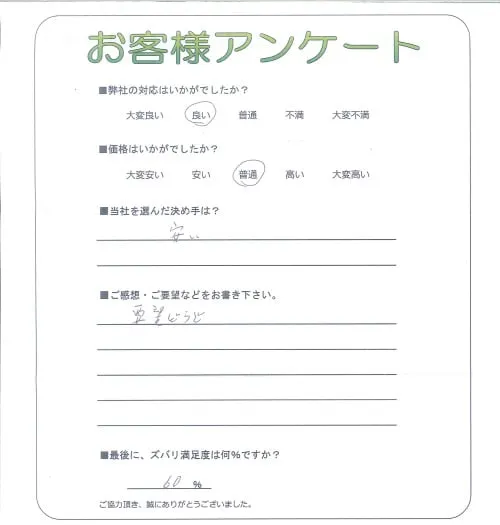 お客様アンケート
■弊社の対応はいかがでしたか？
大変良い 良い 普通 不満 大変不満
■価格はいかがでしたか？
大変安い 安い 普通 高い 大変高い
■当社を選んだ決め手は？
安い
■ご感想・ご要望などをお書き下さい。
要望どうり
■最後に、ズバリ満足度は何％ですか？
60 %
ご協力頂き、誠にありがとうございました。